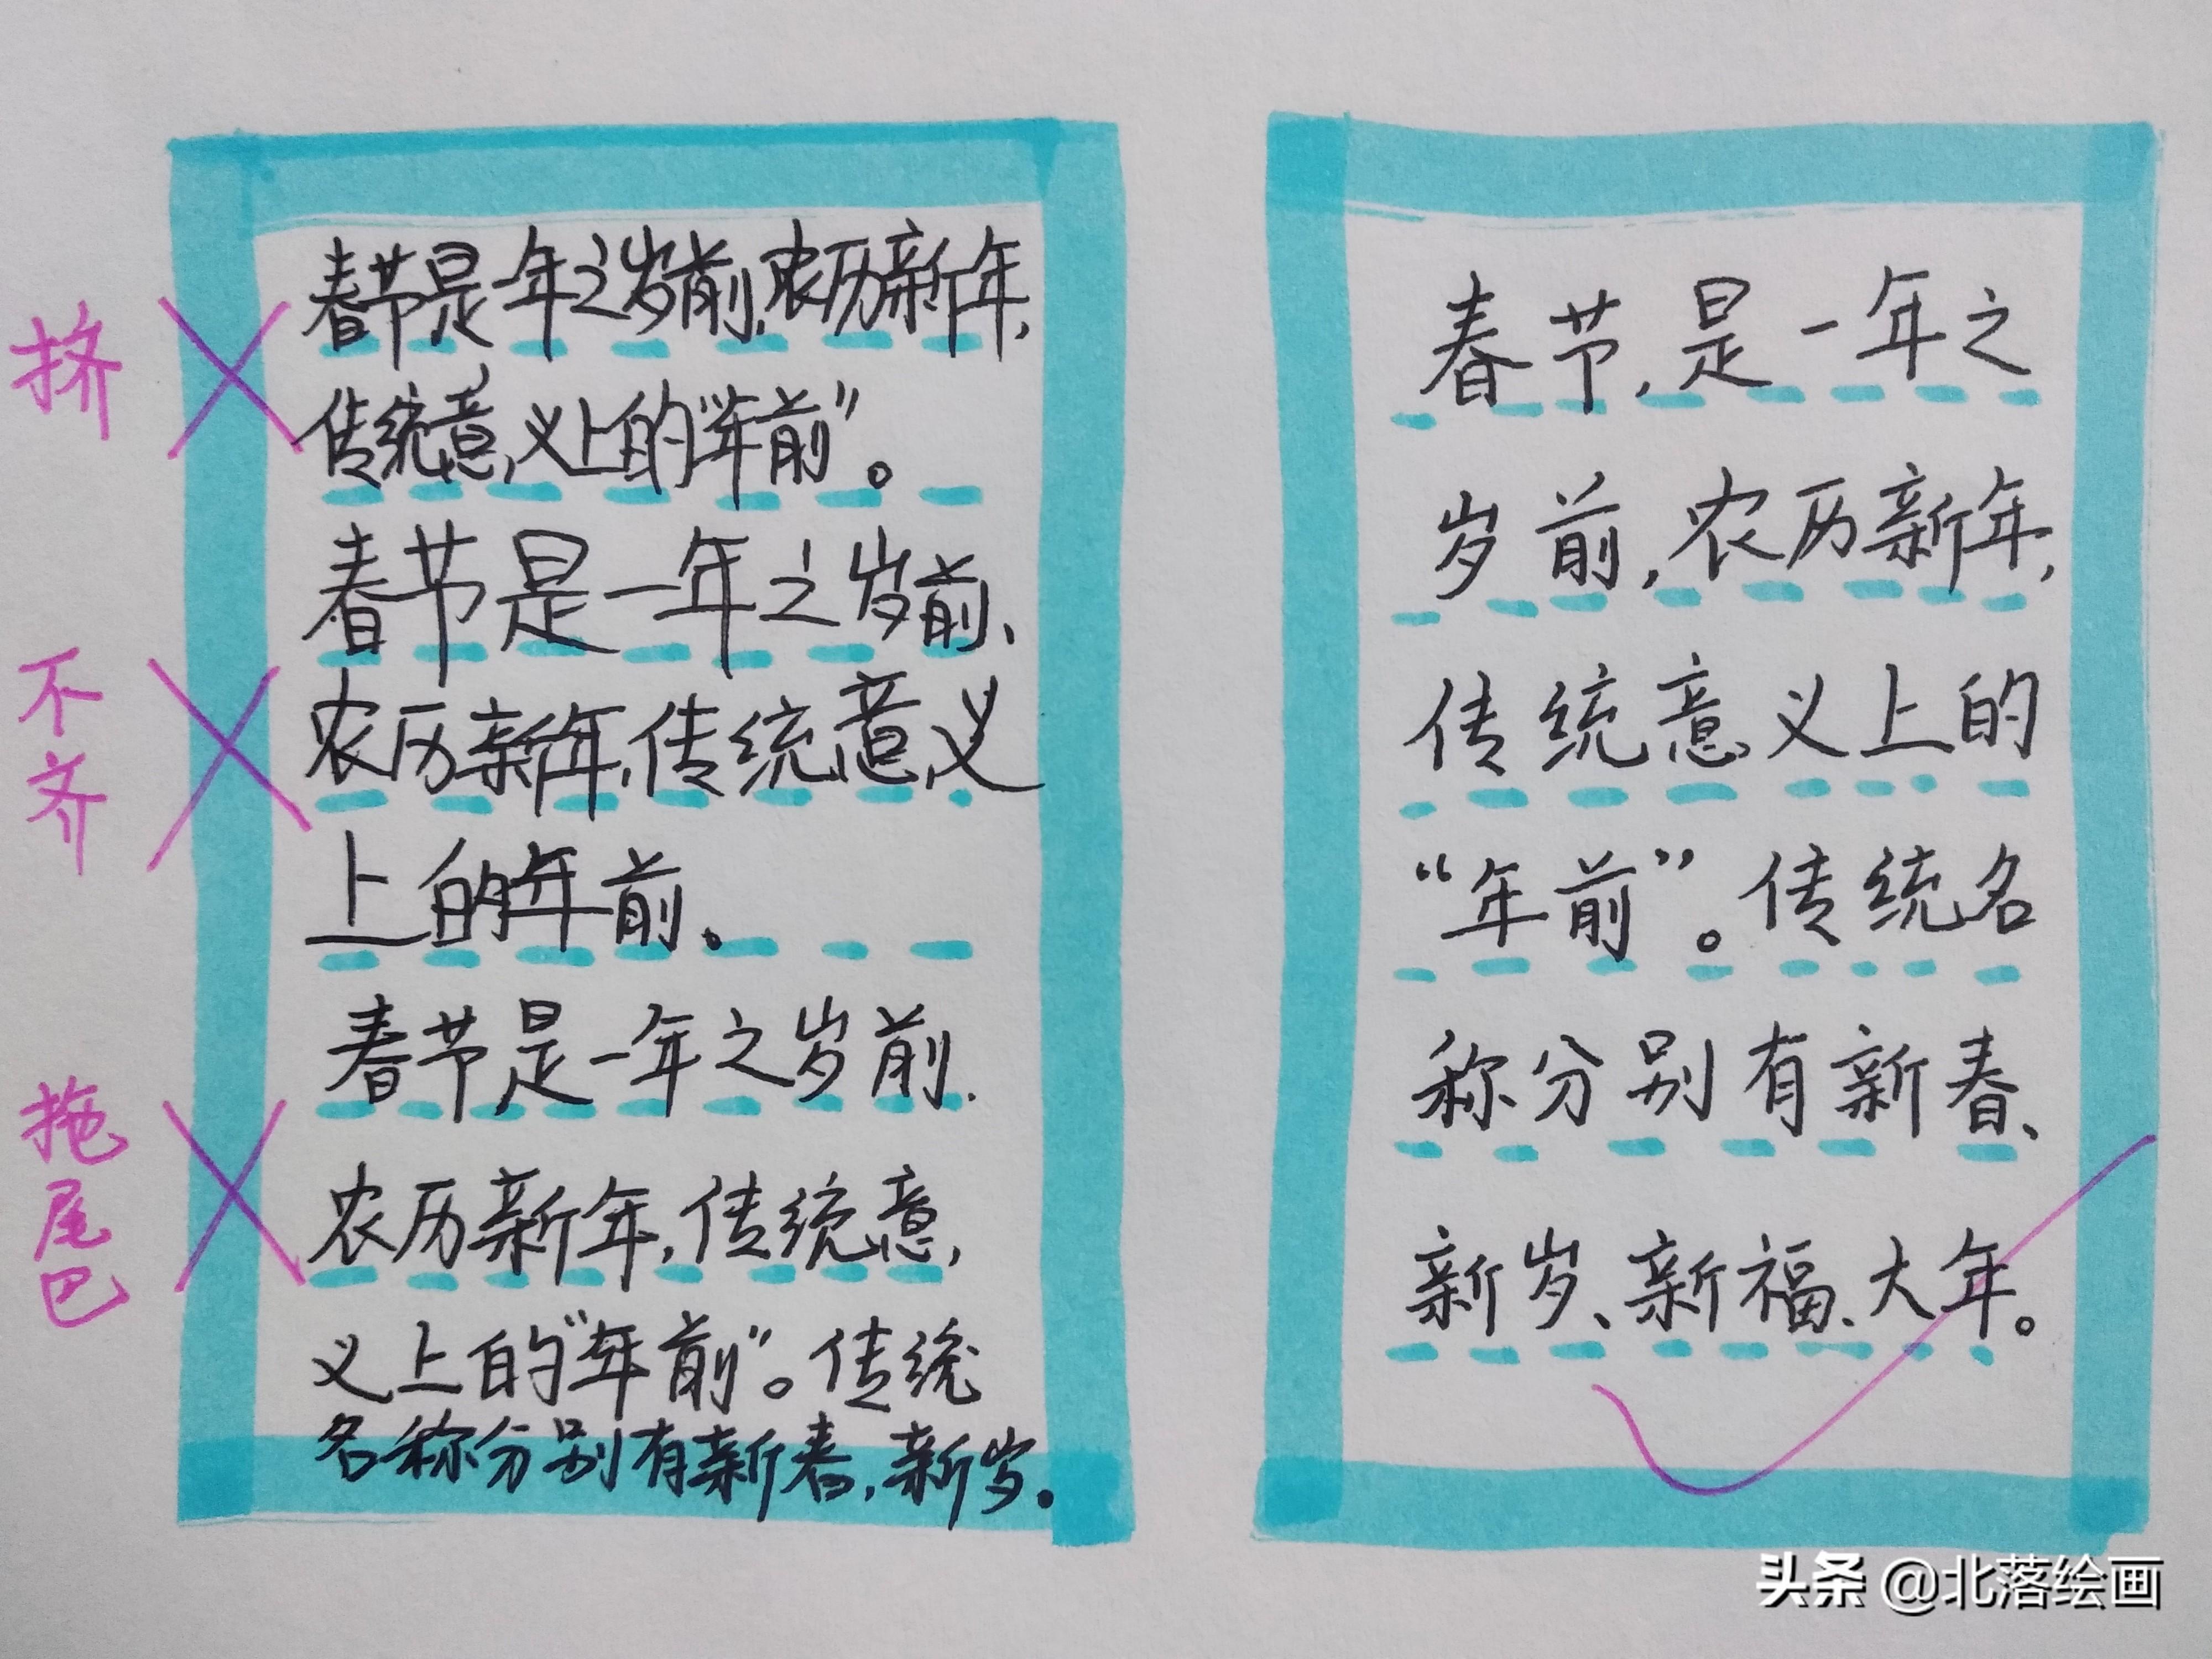 挤
春节是一年之岁前,农历新年,
传统意,义上的“年前”。
不齐
春节是一年之岁前、
农历新年,传统意,义
上的年前。
拖尾巴
春节是一年之岁前.
农历新年,传统意,
义上的“年前”。传统
名称分别有新春,新岁。
春节,是一年之
岁前,农历新年,
传统意义上的
“年前”。传统名
称分别有新春、
新岁、新福、大年。
头条 @北落绘画